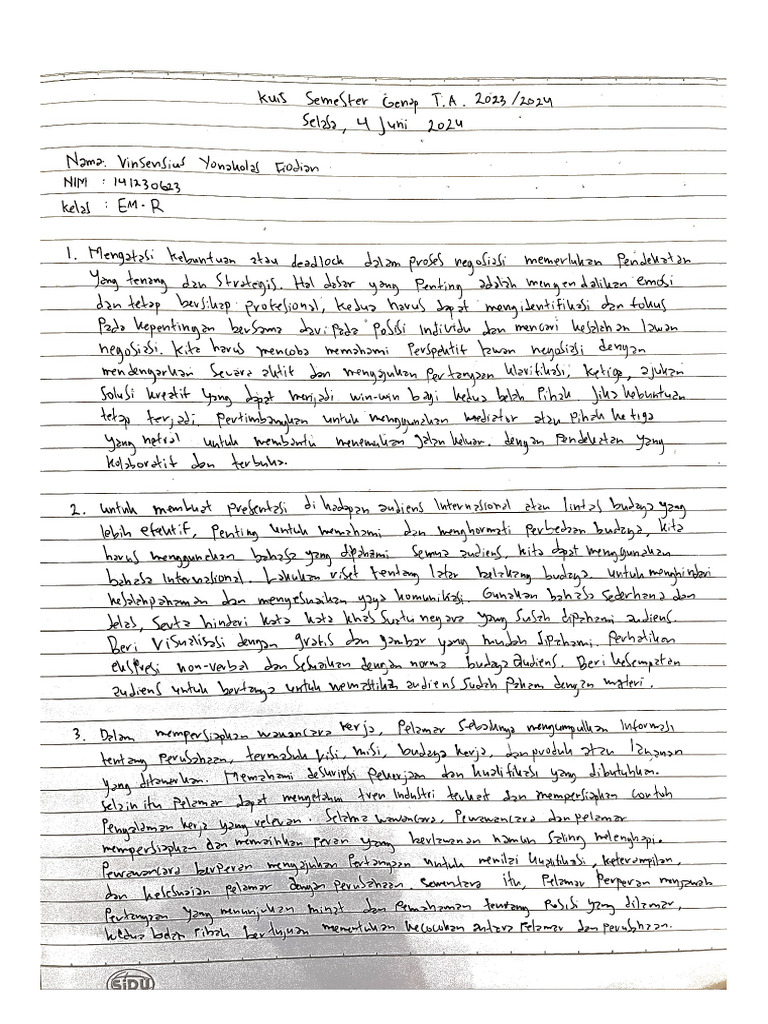 Kuis Semester Genap T.A. 2023/2024
Selasa, 4 Juni 2024
Nama: Vinsensius Yonakolas Godian
NIM : 141230623
Kelas : EM-R
1. Mengatasi kebuntuan atau deadlock dalam proses negosiasi memerlukan Pendekatan
yang tenang dan Strategis. Hal dasar yang Penting adalah mengendalikan emosi
dan tetap bersikap profesional, kedua harus dapat mengidentifikasi dan fokus
Pada kepentingan bersama daripada Posisi Individu dan mencari kesalahan lawan
negosiasi. Kita harus mencoba memahami Perspektif lawan negoisasi dengan
mendengarkan Secara aktif dan mengajukan Pertanyaan klarifikasi, ketiga, ajukan
Solusi kreatif yang dapat menjadi win-win bagi kedua belah Pihak. Jika kebuntuan
tetap terjadi, Pertimbangkan untuk menggunakan mediator atau Pihak ketiga
yang netral untuk membantu menemukan Jalan keluar. dengan Pendekatan yang
kolaboratif dan terbuka.
2. untuk membuat Presentasi di hadapan audiens Internasional atau lintas budaya yang
lebih efektif, Penting untuk memahami dan menghormati Perbedaan budaya, kita
harus menggunakan bahasa yang dipahami Semua audiens, kita dapat menggunakan
bahasa Internasional. Lakukan riset tentang latar belakang budaya untuk menghindari
kesalahpahaman dan menyesuaikan gaya komunikasi. Gunakan bahasa Sederhana dan
Jelas, Serta hinderi kata kata khas Suatu negara yang Susah dipahami audiens.
Beri Visualisasi dengan grafis dan gambar yang mudah dipahami. Perhatikan
ekspresi non-verbal dan Sesuaikan dengan norma budaya audiens. Beri kesempatan
audiens untuk bertanya untuk memastikan audiens Sudah Paham dengan materi.
3. Dalam mempersiapkan wawancara kerja, Pelamar Sebaiknya mengumpulkan Informasi
tentang Perusahaan, termasuk Visi, misi, budaya kerja, dan produk atau layanan
yang ditawarkan. Memahami deskripsi Pekerjaan dan kualifikasi yang dibutuhkan.
Selain itu Pelamar dapat mengetahui tren Industri terkait dan mempersiapkan contoh
Pengalaman kerja yang relevan. Selama wawancara, Pewawancara dan pelamar
mempersiapkan dan memainkan Peran yang berlawanan namun Saling melengkapi.
Pewawancara berperan mengajukan Pertanyaan untuk menilai kualifikasi, keterampilan,
dan kesesuaian Pelamar dengan Perusahaan. Sementara itu, Pelamar Perperan menjawab
Pertanyaan yang menunjukan minat dan Pemahaman tentang Posisi yang dilamar,
kedua belah Pihak bertujuan menentukan kecocokan antara Pelamar dan perusahaan.
SIDU